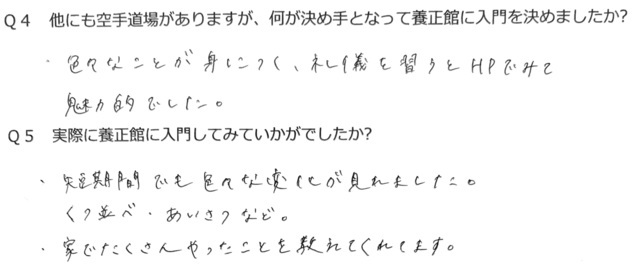 Q4 他にも空手道場がありますが、何が決め手となって養正館に入門を決めましたか?
・色々なことが身につく、礼儀を習うとHPでみて
魅力的でした。
Q5 実際に養正館に入門してみていかがでしたか?
・短期間でも色々な変化が見れました。
くつ並べ・あいさつなど。
・家でたくさんやったことを教えてくれてます。